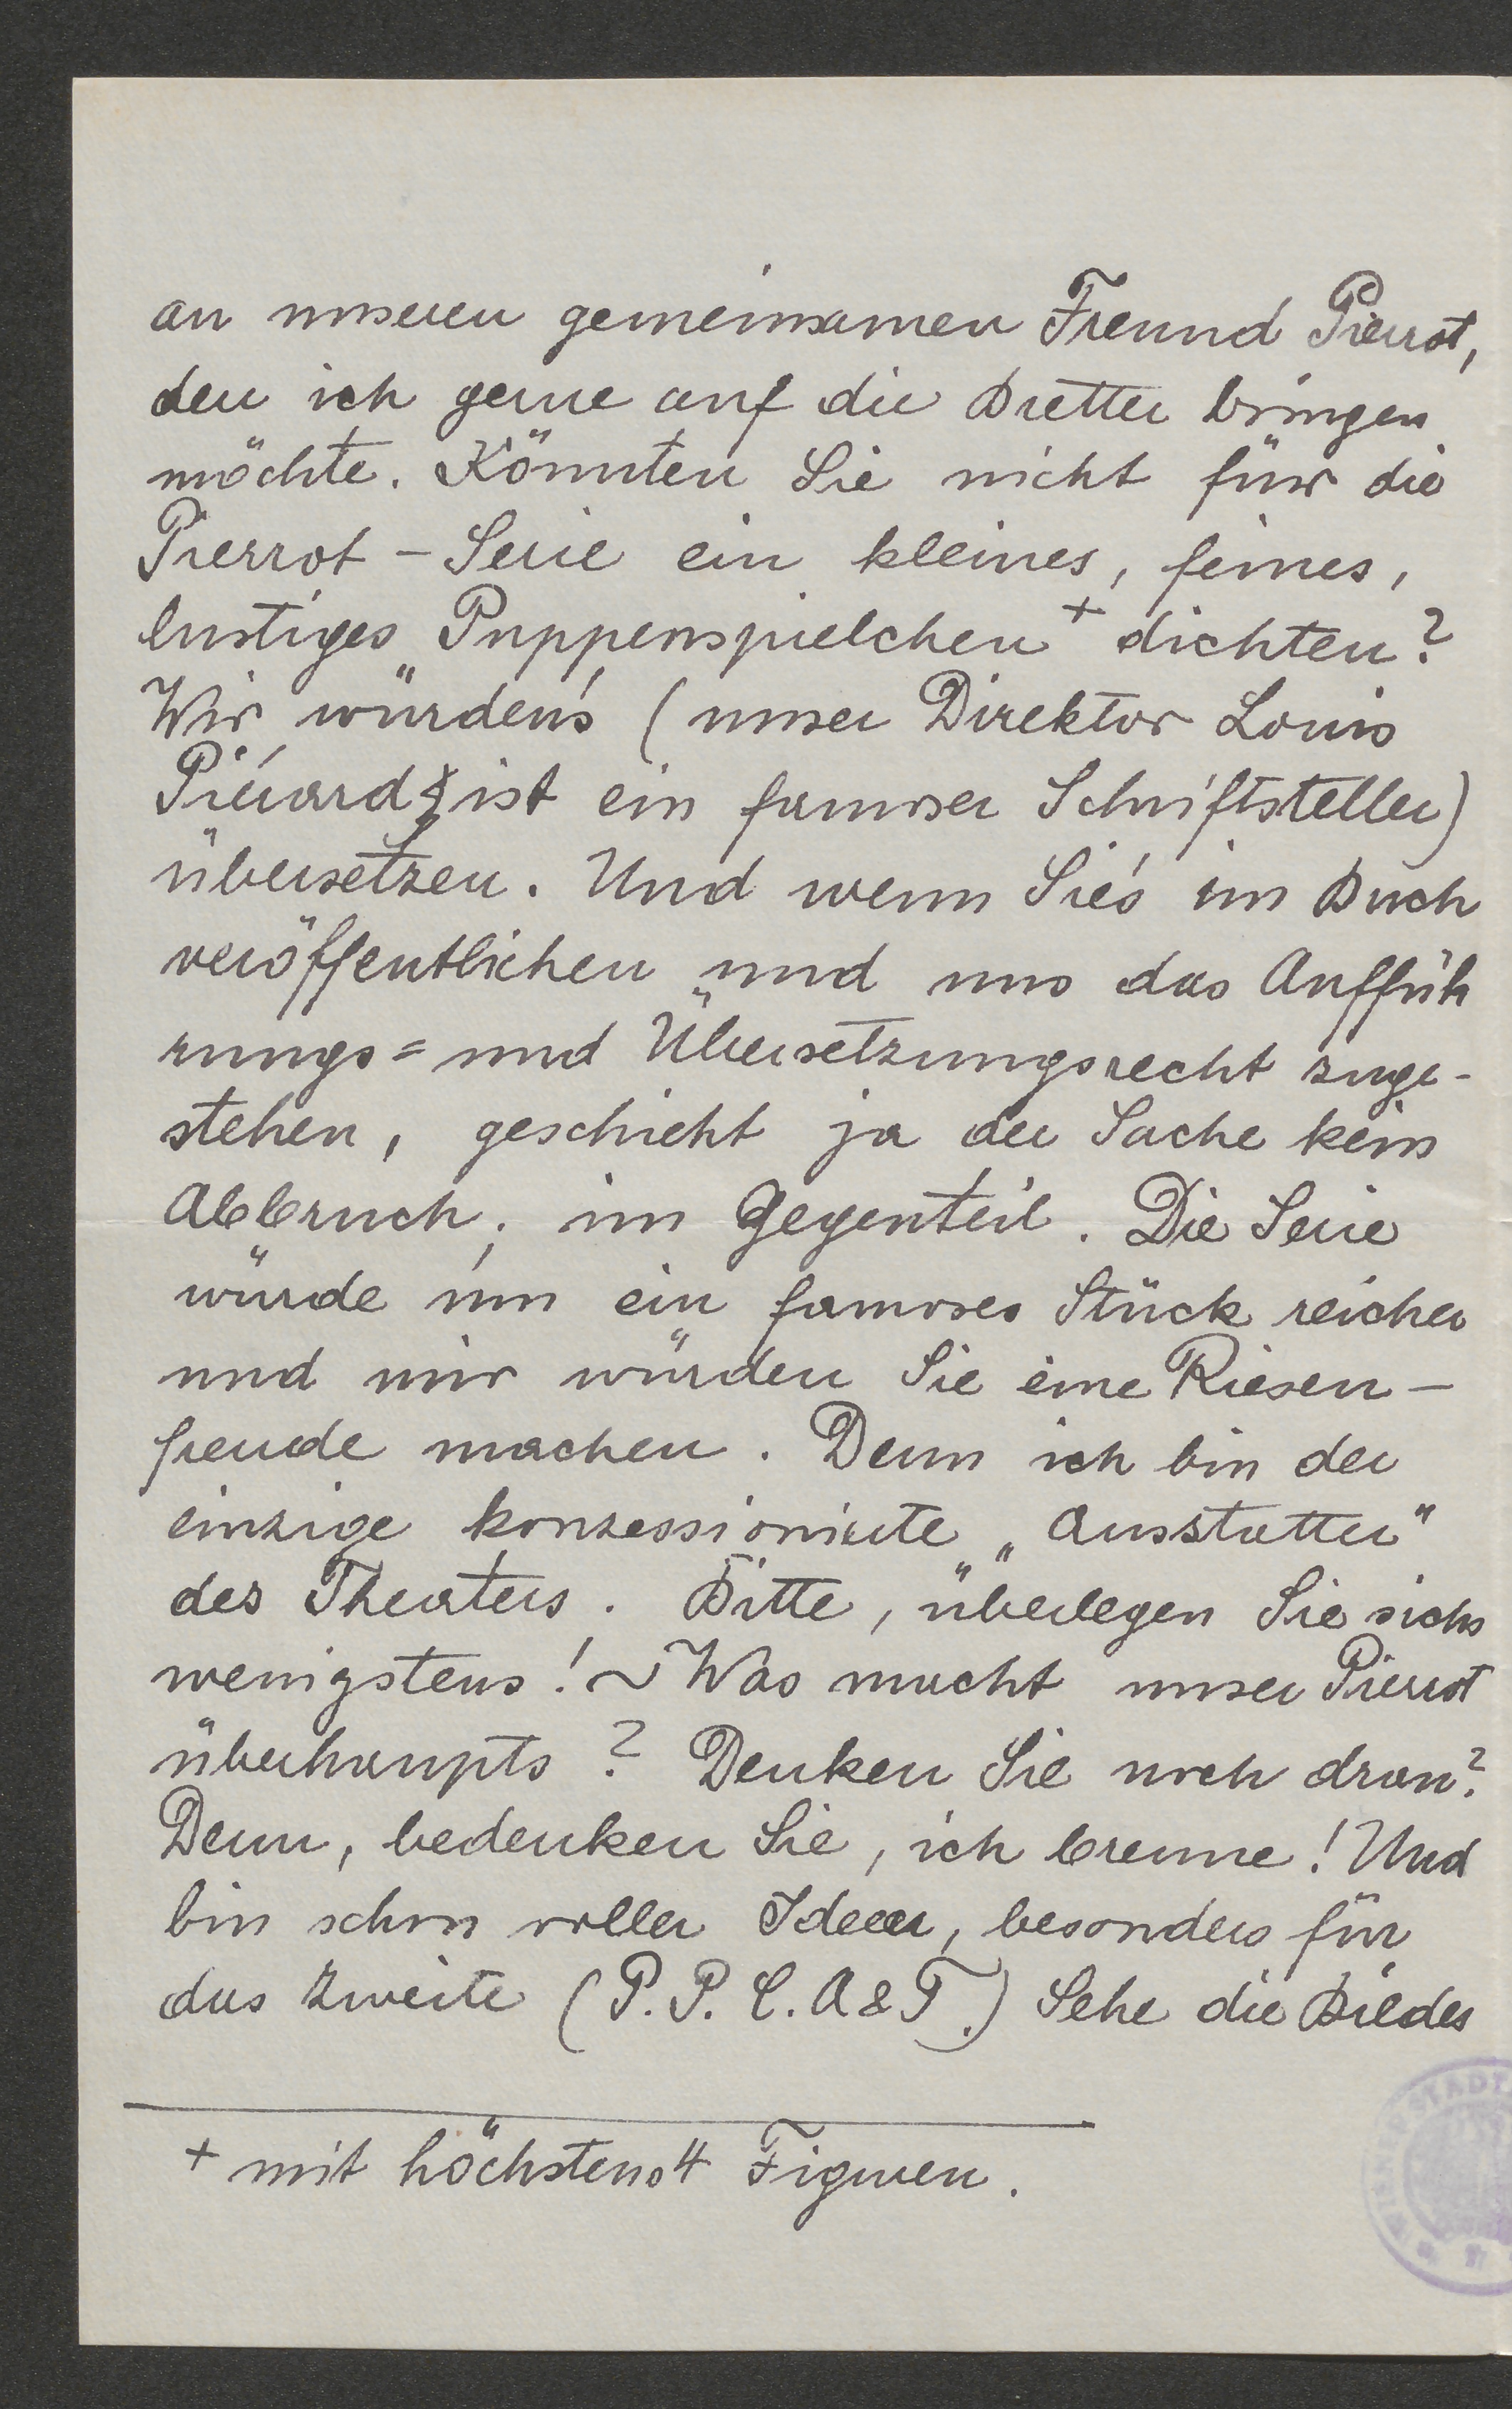 an unseren gemeinsamen Freund Pierrot,
den ich gerne auf die Bretter bringen
möchte. Könnten Sie nicht für die
Pierrot - Serie ein kleines, feines,
lustiges Puppenspielchen + dichten?
Wir würden's (unser Direktor Louis
Piérard ist ein famoser Schriftsteller)
übersetzen. Und wenn Sie's im Buch
veröffentlichen und uns das Auffüh
rungs= und Übersetzungsrecht zuge-
stehen, geschieht ja der Sache kein
Abbruch; im Gegenteil. Die Serie
würde um ein famoses Stück reicher
und mir würden Sie eine Riesen-
freude machen. Denn ich bin der
einzige konzessionierte „Ausstatter"
des Theaters. Bitte, überlegen Sie sichs
wenigstens! ~ Was macht unser Pierrot
überhaupts? Denken Sie noch dran?
Denn, bedenken Sie, ich brenne! Und
bin schon voller Ideeen, besonders für
das Zweite (P. P. C. A & T.) Sehe die Bilder
+ mit höchstens 4 Figuren.
STADT